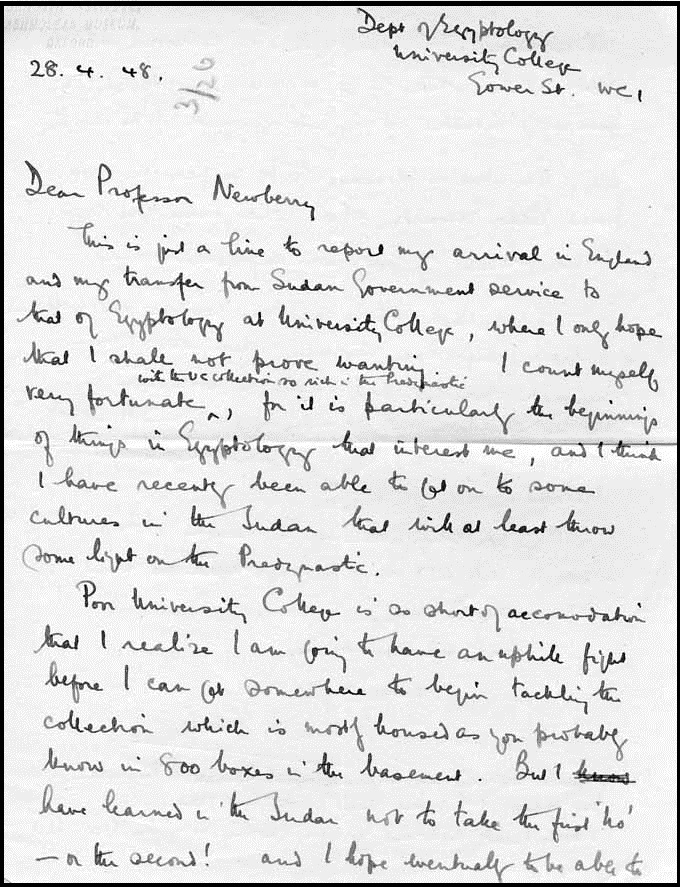 Dept of Egyptology
University College
Gower St. WC1
28. 4. 48.
3/20
Dear Professor Newberry
This is just a line to report my arrival in England
and my transfer from Sudan Government service to
that of Egyptology at University College, where I only hope
that I shall not prove wanting. I count myself
with the UC collection so rich in the Predynastic
very fortunate ^, for it is particularly the beginnings
of things in Egyptology that interest me, and I think
I have recently been able to get on to some
cultures in the Sudan that will at least throw
some light on the Predynastic.
Poor University College is so short of accomodation
that I realize I am going to have an uphill fight
before I can get somewhere to begin tackling the
collection which is mostly housed as you probably
know in 800 boxes in the basement. But I know
have learned in the Sudan not to take the first 'no'
— or the second! and I hope eventually to be able to